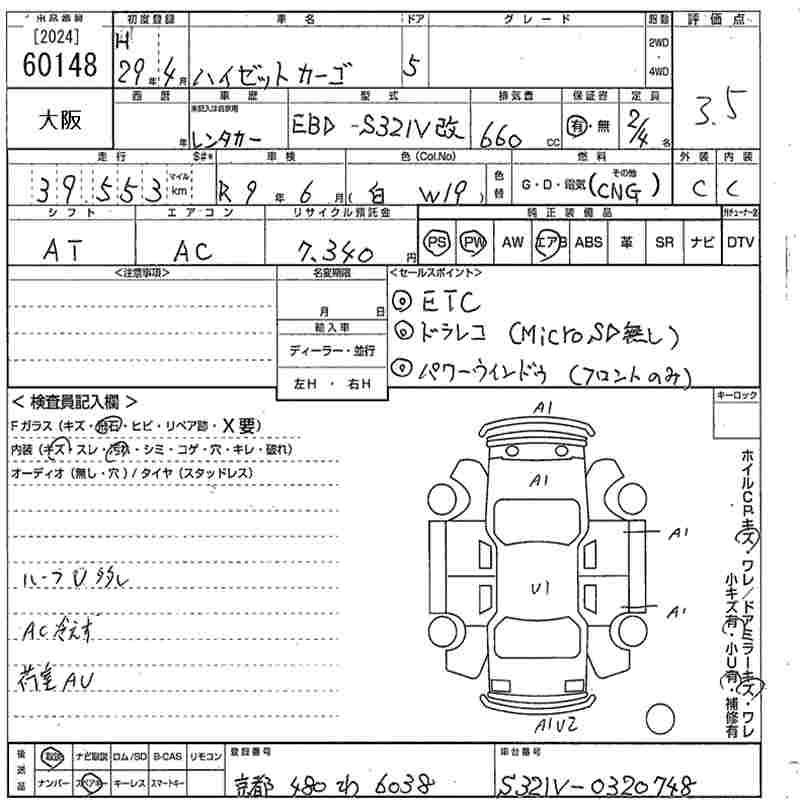 [2024]
60148
大阪
初度登録
H
29年 4月
車名
ハイゼットカーゴ
ドア
5
グレード
2WD
・
4WD
評価点
3.5
西暦
年
車歴
未記入は自家用
レンタカー
型式
EBD -S321V改
排気量
660 cc
保証書
有・無
定員
2/4名
走行
$#*
39,553
マイル
km
車検
R 9年 6月
色(Col.No)
(白 W19)
色替
燃料
G・D・電気(その他 CNG)
外装
C
内装
C
シフト
AT
エアコン
AC
リサイクル預託金
7,340円
純正装備品
PS PW AW エアB ABS 革 SR ナビ DTV
<注意事項>
名変期限
月 日
輸入車
ディーラー・並行
左H・右H
<セールスポイント>
◎ ETC
◎ ドラレコ (MicroSD無し)
◎ パワーウインドゥ (フロントのみ)
<検査員記入欄>
Fガラス(キズ・飛石・ヒビ・リペア跡・X要)
内装(キズ・スレ・汚れ・シミ・コゲ・穴・キレ・破れ)
オーディオ(無し・穴)/タイヤ(スタッドレス)
ルーフU多し
AC冷えず
荷室AU
キーロック
A1
A1
A1
U1
A1
A1U2
ホイルCPキズ・ワレ/ドアミラーキズ・ワレ
小キズ有・小U有・補修有
後送品
取説 ナビ取説 ロム/SD B-CAS リモコン
ナンバー スペアキー キーレス スマートキー
登録番号
京都 480 わ 6038
車台番号
S321V-0320748